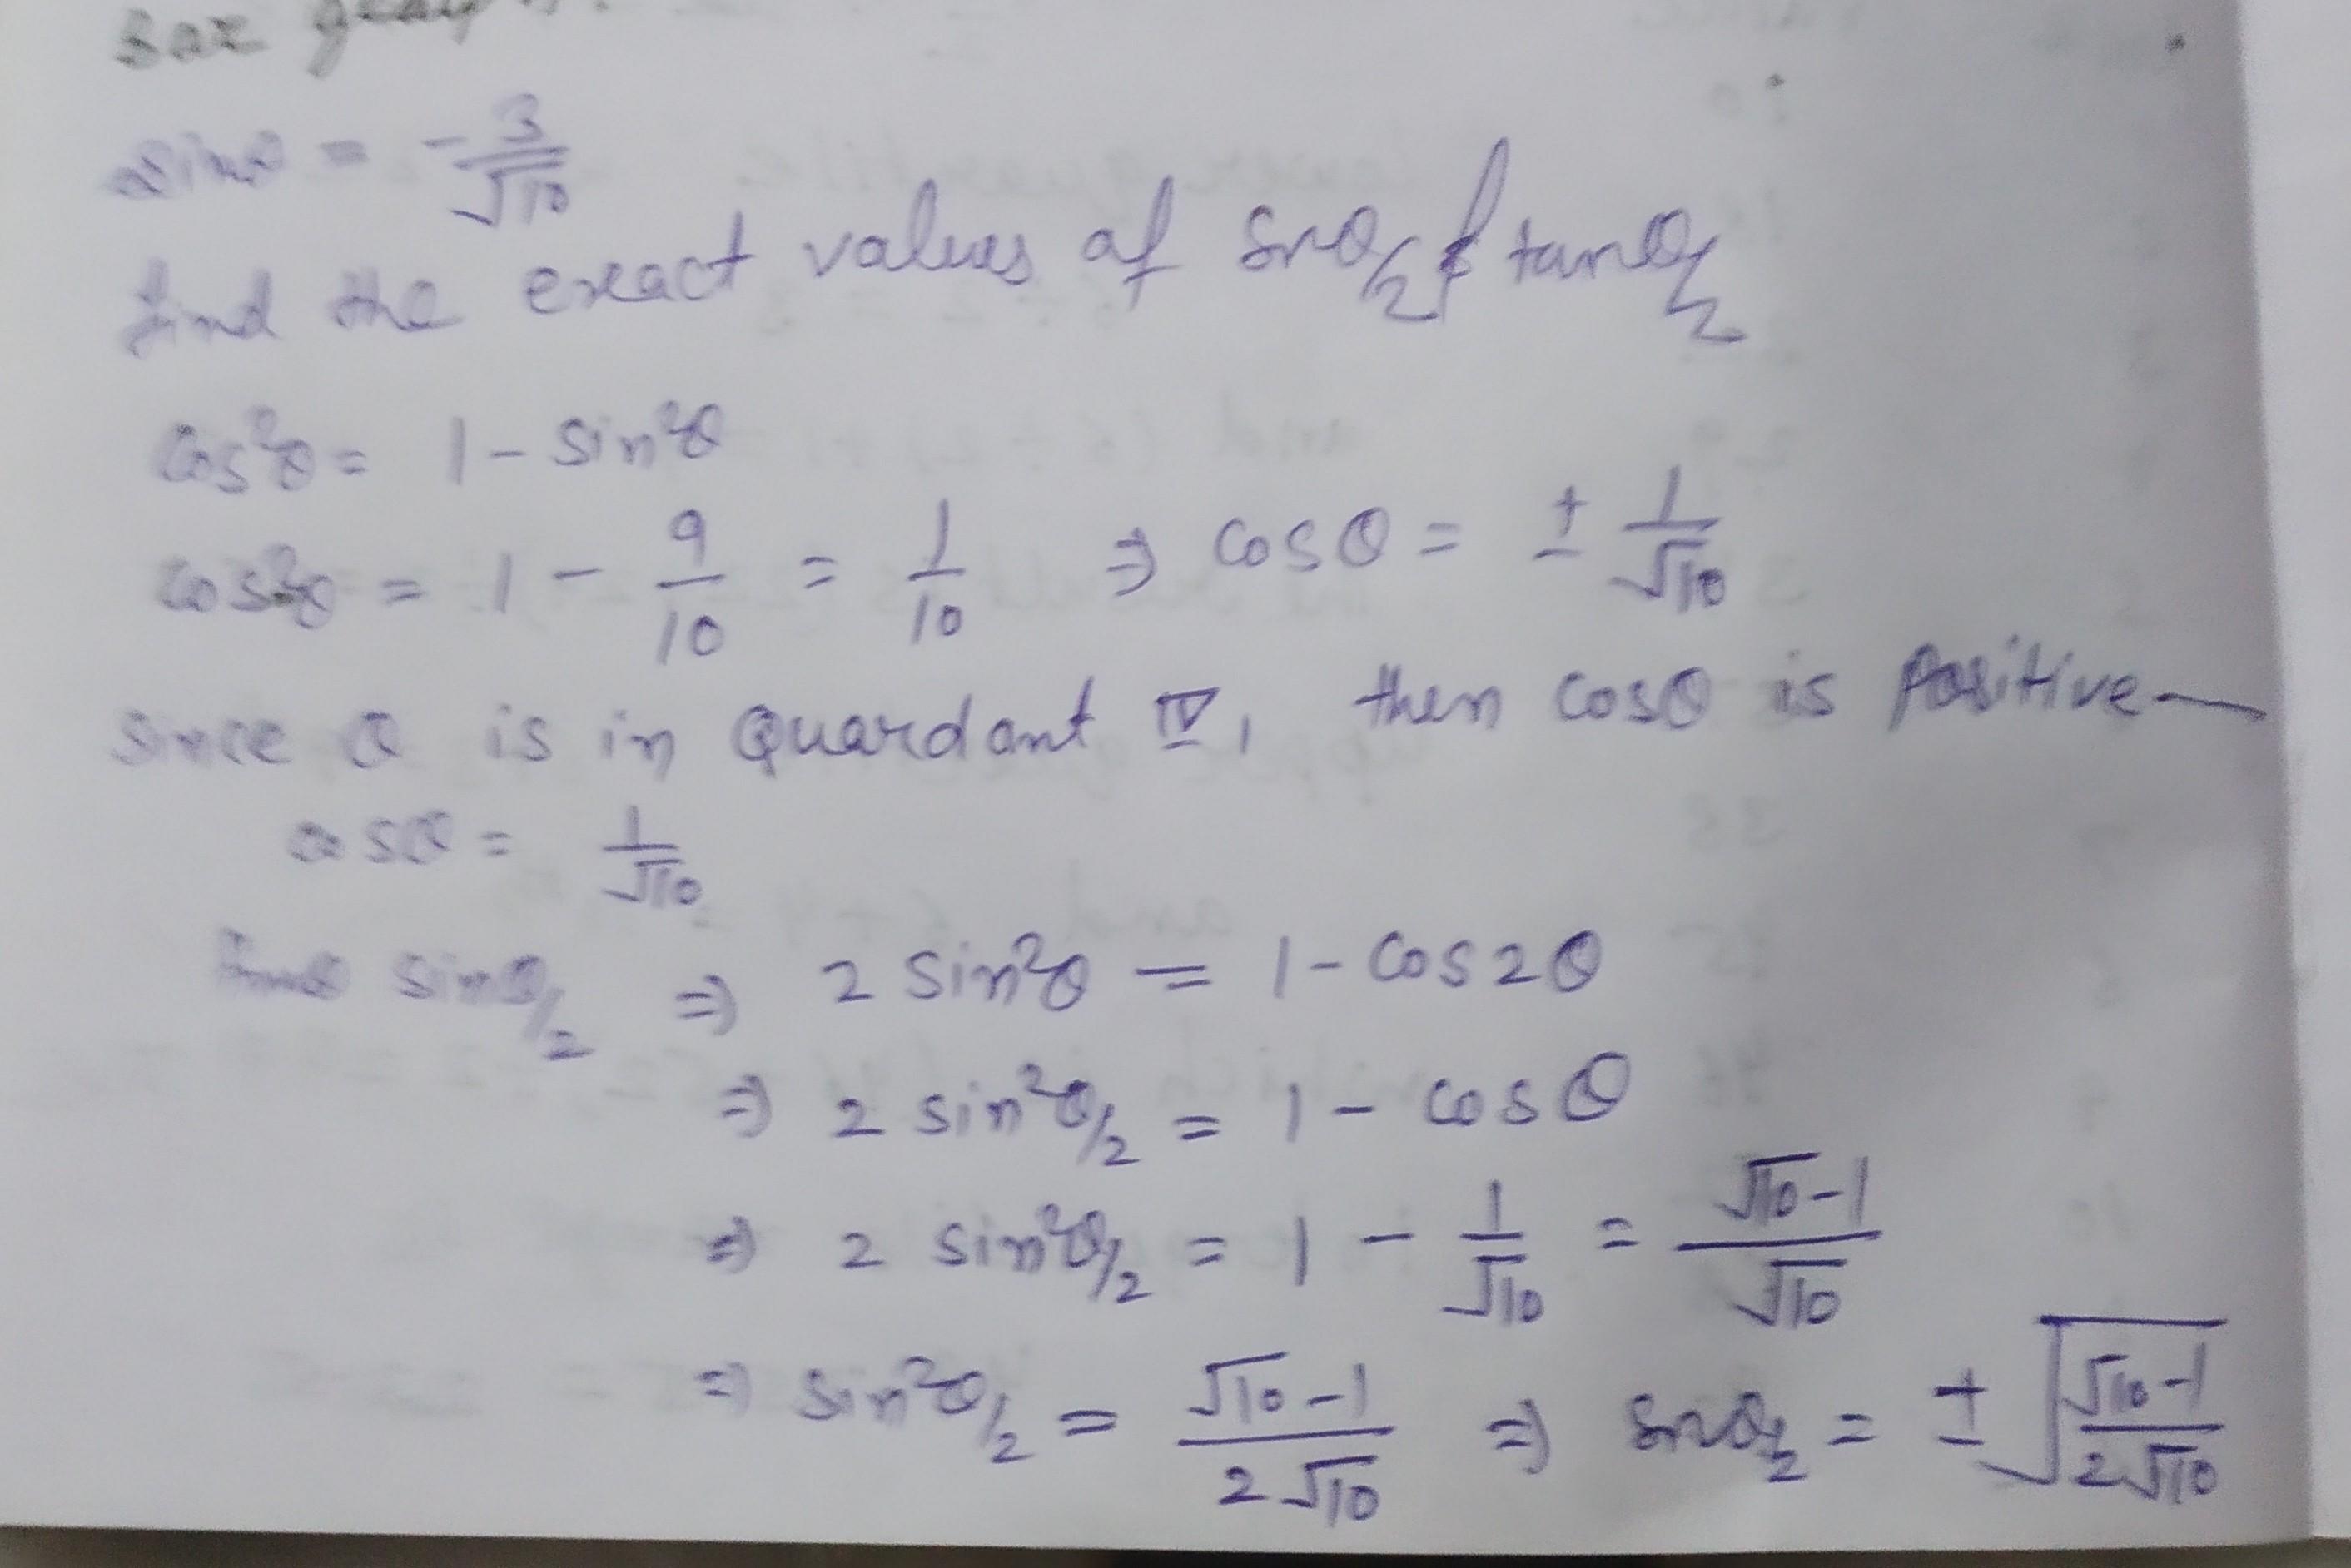 sinθ = -3/√10
find the exact values of sinθ/2 & tanθ/2
cos²θ = 1 - sin²θ
cos²θ = 1 - 9/10 = 1/10 ⇒ cosθ = ± 1/√10
since θ is in Quardant IV, then cosθ is Positive
cosθ = 1/√10
find sinθ/2 ⇒ 2 sin²θ = 1 - cos2θ
⇒ 2 sin²θ/2 = 1 - cosθ
⇒ 2 sin²θ/2 = 1 - 1/√10 = (√10-1)/√10
⇒ sin²θ/2 = (√10-1)/(2√10) ⇒ sinθ/2 = ± √((√10-1)/(2√10))